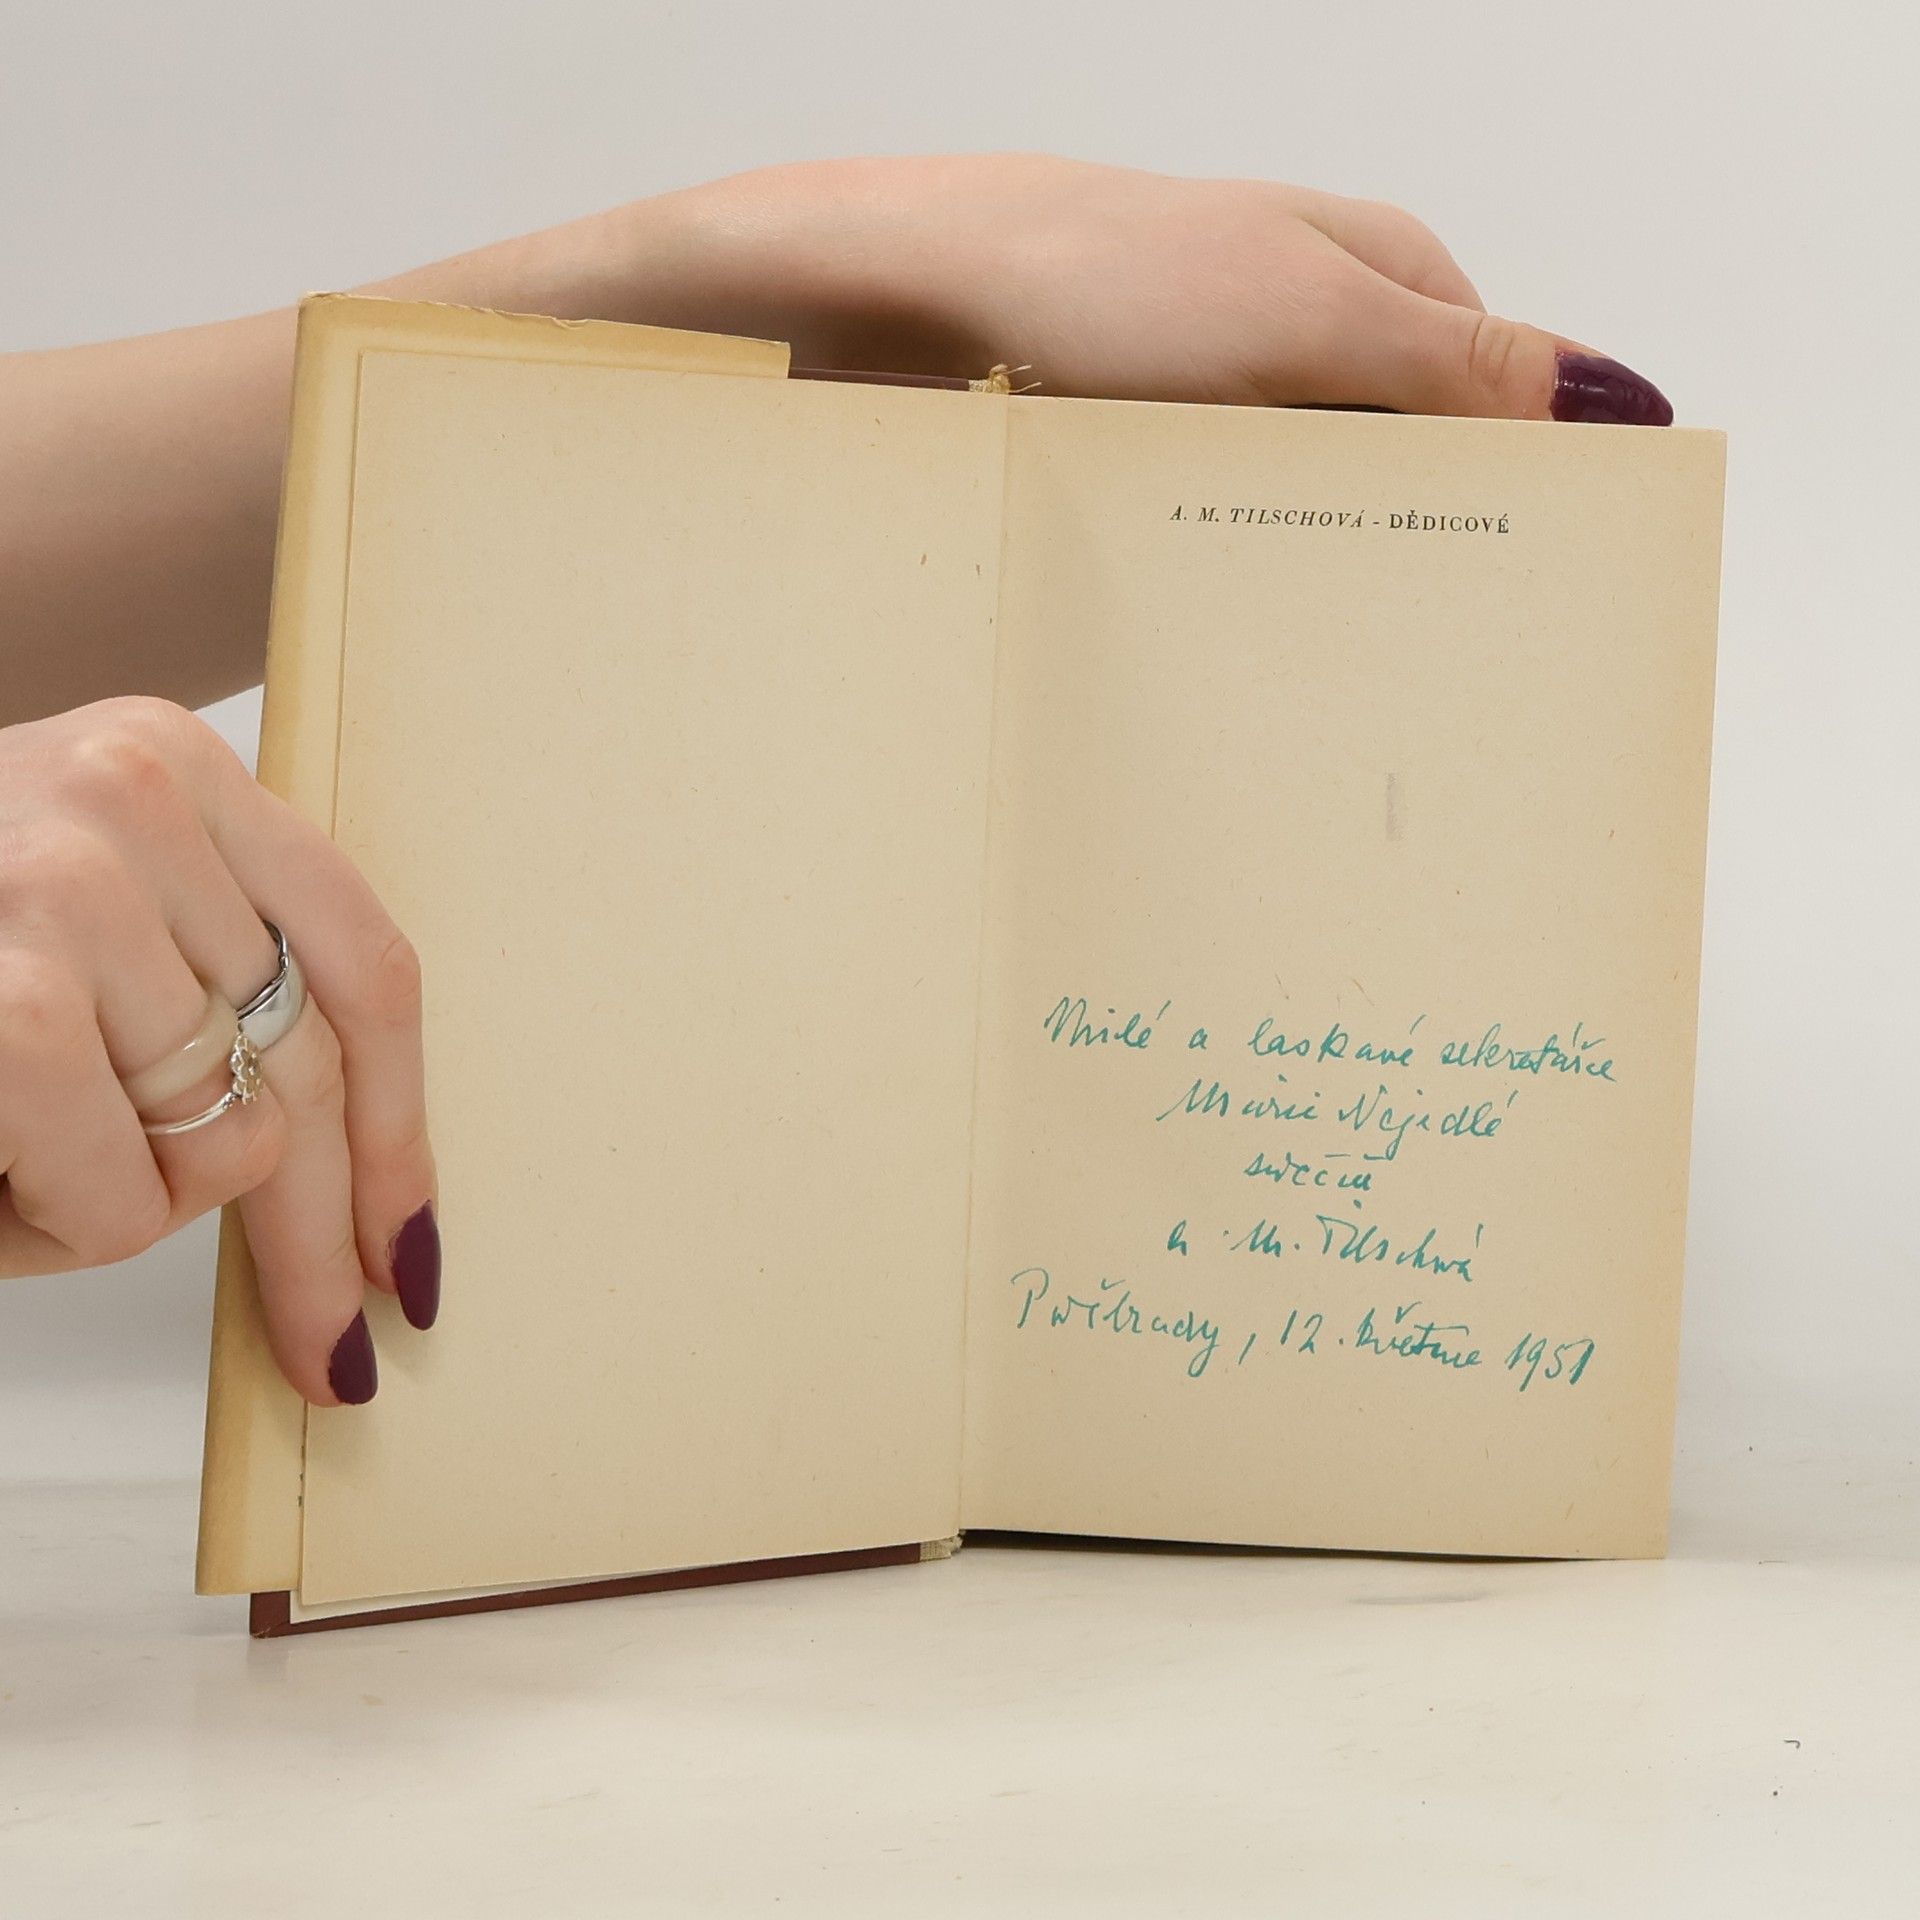 A. M. TILSCHOVÁ - DĚDICOVÉ
Milé a laskavé sekretářce
Marii Nejedlé
srdečně
A. M. Tilschová
Poděbrady, 12. května 1951